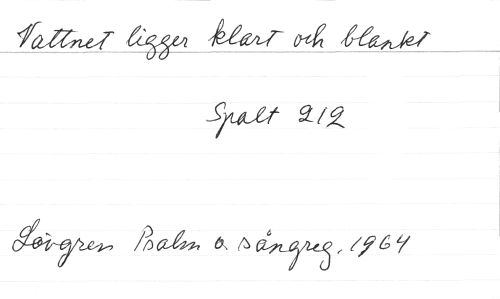 Vattnet ligger klart och blankt
Spalt 212
Lövgren Psalm o. sångreg. 1964